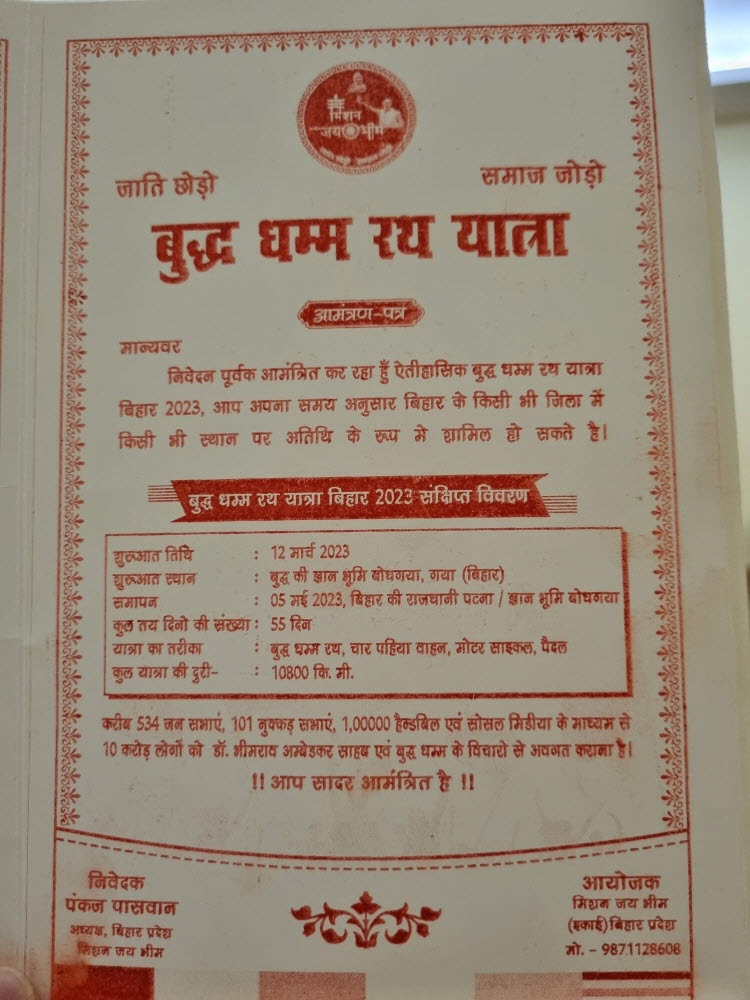 मिशन
जय भीम
जाति छोड़ो
समाज जोड़ो
बुद्ध धम्म रथ यात्रा
आमंत्रण-पत्र
मान्यवर
निवेदन पूर्वक आमंत्रित कर रहा हुँ ऐतीहासिक बुद्ध धम्म रथ यात्रा
बिहार 2023, आप अपना समय अनुसार बिहार के किसी भी जिला में
किसी भी स्थान पर अतिथि के रूप मे शामिल हो सकते है।
बुद्ध धम्म रथ यात्रा बिहार 2023 संक्षिप्त विवरण
शुरूआत तिथि : 12 मार्च 2023
शुरूआत स्थान : बुद्ध की ज्ञान भूमि बोधगया, गया (बिहार)
समापन : 05 मई 2023, बिहार की राजधानी पटना / ज्ञान भूमि बोधगया
कुल तय दिनो की संख्या : 55 दिन
यात्रा का तरीका : बुद्ध धम्म रथ, चार पहिया वाहन, मोटर साइकल, पैदल
कुल यात्रा की दुरी- : 10800 कि. मी.
करीब 534 जन सभाएं, 101 नुक्कड़ सभाएं, 1,00000 हैन्डबिल एवं सोसल मिडीया के माध्यम से
10 करोड़ लोगों को डॉ. भीमराव अम्बेडकर साहब एवं बुद्ध धम्म के विचारो से अवगत कराना है।
!! आप सादर आमंत्रित है !!
निवेदक
पंकज पासवान
अध्यक्ष, बिहार प्रदेश
मिशन जय भीम
आयोजक
मिशन जय भीम
(इकाई) बिहार प्रदेश
मो. - 9871128608